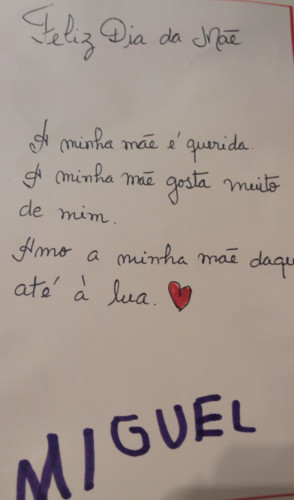 Feliz Dia da Mãe
A minha mãe é querida.
A minha mãe gosta muito
de mim.
Amo a minha mãe daqu
até à lua.
MIGUEL